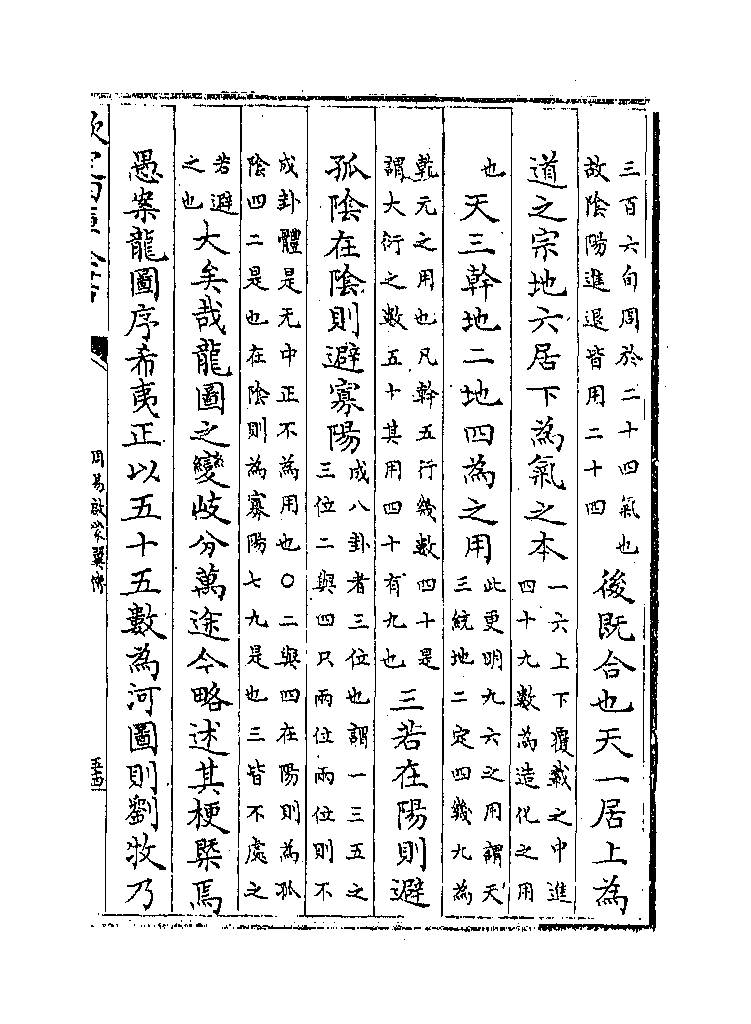 三百六旬周於二十四氣也
故陰陽進退皆用二十四
後既合也天一居上為
道之宗地六居下為氣之本
一六上下覆載之中進
四十九數為造化之用
也
天三幹地二地四為之用
此更明九六之用謂天
三統地二定四幾九為
乾元之用也凡幹五行幾數四十是
謂大衍之數五十其用四十有九也
三若在陽則避
孤陰在陰則避寡陽
成八卦者三位也謂一三五之
三位二與四只兩位兩位則不
成卦體是无中正不為用也〇二與四在陽則為孤
陰四二是也在陰則為寡陽七九是也三皆不處之
若避
之也
大矣哉龍圖之變岐分萬途今略述其梗槩焉
愚案龍圖序希夷正以五十五數為河圖則劉牧乃
欽定四庫全書
周易啟蒙翼傳